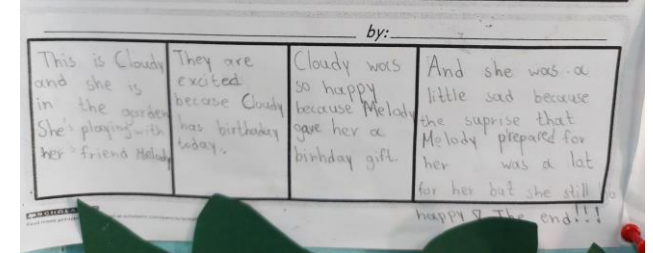 by:
This is Cloudy
and she is
in the garden
She's playing with
her friend Melody
They are
excited
becase Cloudy
has birthday
today.
Cloudy was
so happy
because Melody
gave her a
birhday gift.
And she was a
little sad because
the suprise that
Melody prepared for
her was a lat
for her but she still
happy The end!!!